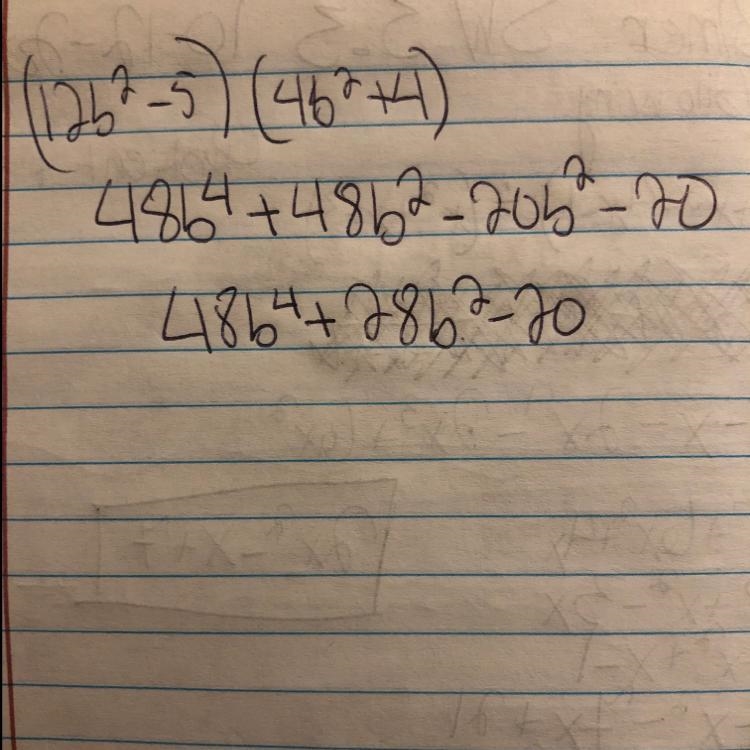 (12b² -5) (4b² +4)
48b⁴ + 48b² - 20b² - 20
48b⁴ + 28b² - 20